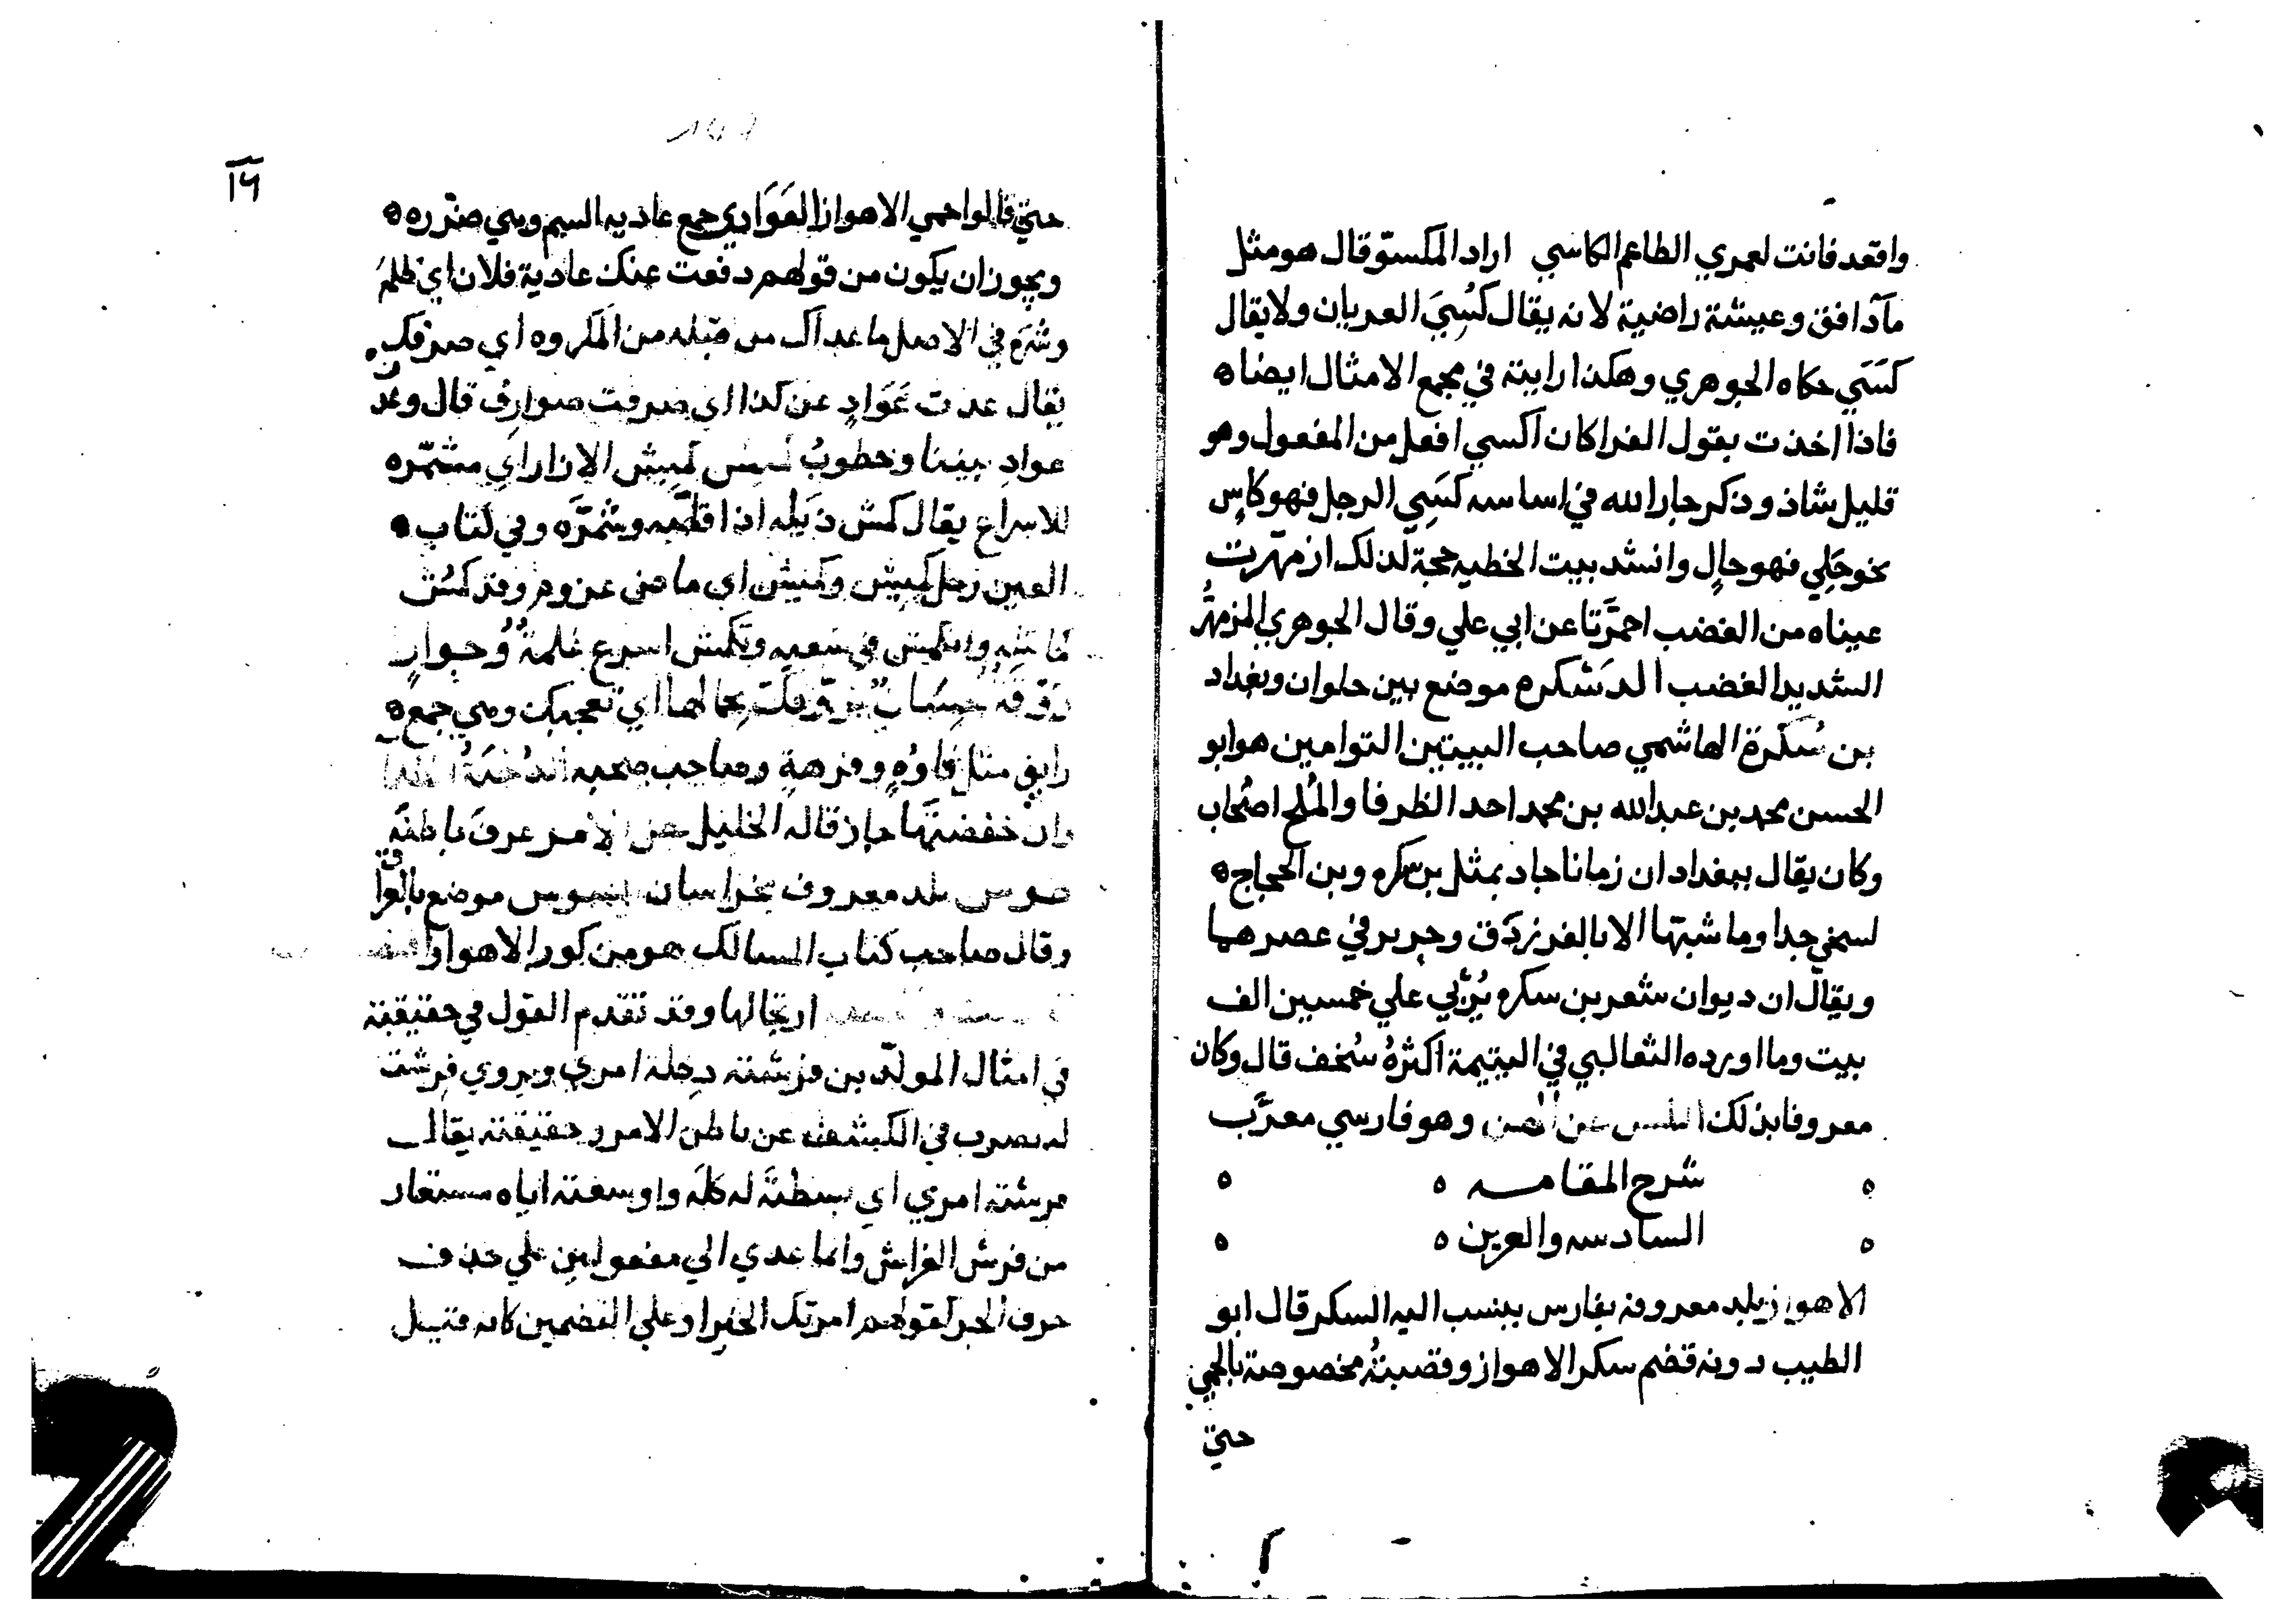 واقعد فانت لعمري الطاعم الكاسي اراد المكسوّ قال هو مثل
مآ دافق وعيشة راضية لانه يقال كُسِيَ العريان ولا يقال
كَسَي حكاه الجوهري وهكذا رايته في مجمع الامثال ايضا ه
فاذا اخذت بقول الفرا كان اكسي افعل من المفعول وهو
قليل شاذ وذكر جار الله في اساسه كَسِي الرجل فهو كاسٍ
نحو حَلِي فهو حالٍ وانشد بيت الخطيه حجة لذلك ازمهرّت
عيناه من الغضب احمرَّتا عن ابي علي وقال الجوهري المزمهرُّ
الشديد الغضب الدَشكره موضع بين حلوان وبغداد
بن سُكَّرة الهاشمي صاحب البيتين التوامين هو ابو
الحسن محمد بن عبد الله بن محمد احد الظرفا والمُلح اصحاب
وكان يقال ببغداد ان زمانا جاد بمثل بن سكره وبن الحجاج ه
لسخي جدا وما شبتها الا بالفرزدق وجرير في عصرهما
ويقال ان ديوان شعر بن سكره يُرْبي علي خمسين الف
بيت وما اورده الثعالبي في اليتيمة اكثرهُ سُخف قال وكان
معروفا بذلك وهو فارسي معرَّب
ه شرح المقامـــه ه ه
ه السادسه والعرين ه ه
الاهواز بلد معروفه بفارس ينسب اليه السكر قال ابو
الطيب دونه قضم سكر الاهواز وقصبتهُ مخصوصة بالحمي
حتي
١٩
حتي قالوا حمي الاهواز العَوَادي جمع عاديه السيم وهي ضرره ه
ويجوز ان يكون من قولهم دفعت عنك عادية فلان اي ظلمَه
وشرَه في الاصل ما عداك من قبله من المكروه اي صرفك
يقال عدت عَوَادٍ عن كذا اي صرفت صوارف قال وعَدَت
عوادٍ بيننا وخطوبُ كميش الازار اي مشمّره
للاسراع يقال كمش ذَيله اذا قلّصه وشمّرَه وفي كتاب ه
العين رجل كميش وكميش اي ماضٍ عزوم وقد كمُش
كماشة وانكمش في سعيه وتكمّش اسرع غلمةٌ وجوارٍ
رُوقةٌ حِسَان تروقك بجمالها اي تعجبك وهي جمع ه
رايق مثل فارُهٍ وفرهةٍ وصاحب صحبه
وان خفضتَها جاز قاله الخليل الامر عرف باطنَه
طوس بلد معروف بخراسان السوس موضع بالعراق
وقال صاحب كتاب المسالك هو من كور الاهواز
ارتجالها وقد تقدم القول في حقيقته
في امثال المولّدين فرشته دخلة امري ويروي فرشت
له يضرب في الكشف عن باطن الامر وحقيقته يقالـ
فرشته امري اي بسطتَه له كلّه واوسعته اياه مستعار
من فرش الفراش وانما عدي الي مفعولين علي حذف
حرف الجر كقولهم امرتك الخيرا وعلي التضمين كانه قيل